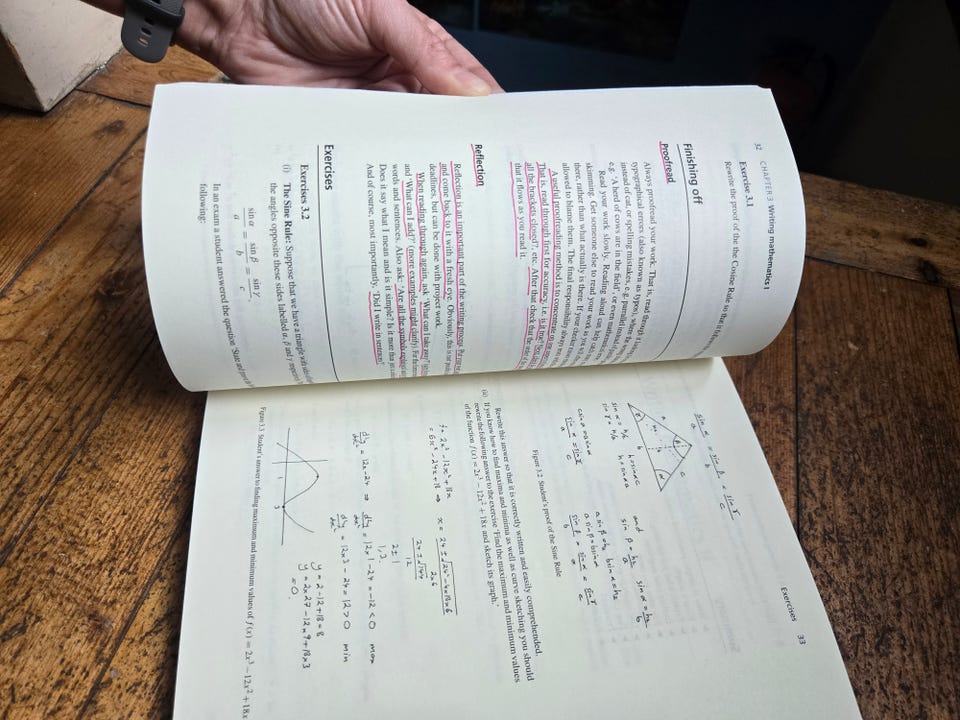 32 CHAPTER 3 Writing mathematics I
Exercise 3.1
Rewrite the proof of the Cosine Rule so that it
Finishing off
Proofread
Always proofread your work. That is, read through it
typographical errors (also known as typos), where
instead of cat, or spelling mistakes, e.g.
e.g. 'A herd of cows are in the field', or even
Read your work slowly. Reading aloud can help
skimming. Get someone else to read your work
there, rather than what actually is there. If your
allowed to blame them. The final responsibility always
A useful proofreading method is to concentrate on
That is, read through first for accuracy, i.e. is it true?
all the brackets closed?, etc. After that check that
that it flows as you read it.
Reflection
Reflection is an important part of the writing process. Put
and come back to it with a fresh eye. Obviously, this is
deadlines, but can be done with project work.
When reading through again, ask 'What can I take away?'
and 'What can I add?' (more examples might clarify).
words and sentences. Also ask: 'Are all the symbols
Does it say what I mean and is it simple? Is it more than
And of course, most importantly, 'Did I write in sentences?'
Exercises
Exercises 3.2
(i) The Sine Rule: Suppose that we have a triangle with sides
the angles opposite these sides labelled α, β and γ
sin α / a = sin β / b = sin γ / c
In an exam a student answered the question 'State and
following:
Exercises 33
sin α / a = sin β / b = sin γ / c
Figure 3.2 Student's proof of the Sine Rule
Rewrite this answer so that it is correctly written and easily comprehended.
(ii) If you know how to find maxima and minima as well as curve sketching you should
rewrite the following answer to the exercise 'Find the maximum and minimum values
of the function f(x) = 2x³ − 12x² + 18x and sketch its graph.'
2x³ − 12x² + 18x
= 6x² − 24x + 18 ⇒ x = 24 ± √24² − 4×18×6 / 2×6
24 ± √144 / 12
2 ± 1
1, 3.
d²y/dx² = 12x − 24 ⇒ d²y/dx² = 12×1 − 24 = −12 < 0 max
d²y/dx² = 12×3 − 24 = 12 > 0 min
y = 2 − 12 + 18 = 8
y = 2×27 − 12×9 + 18×3
= 0.
1 3
Figure 3.3 Student's answer to finding maximum and minimum values of f(x) = 2x³ − 12x² + 18x